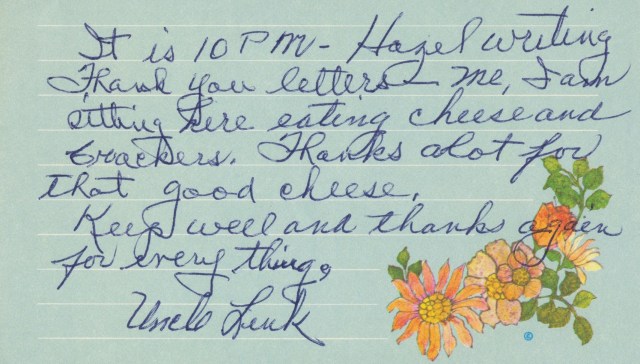 It is 10 PM - Hazel writing
Thank you letters - me, I am
sitting here eating cheese and
crackers. Thanks alot for
that good cheese.
Keep well and thanks again
for every thing,
Uncle Link
©